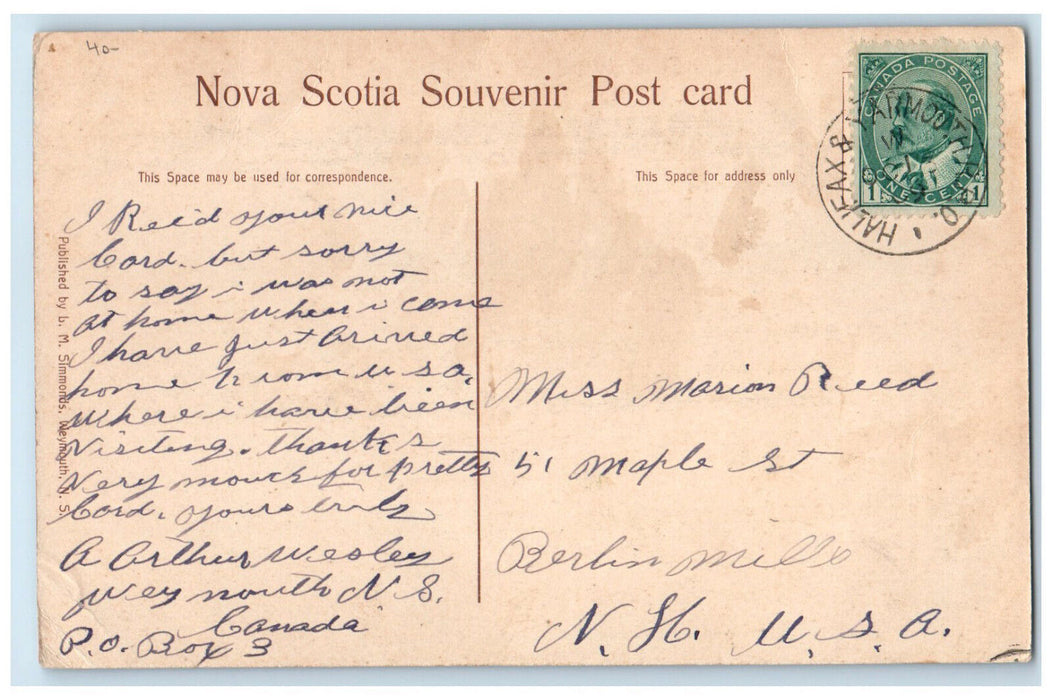 40-
Nova Scotia Souvenir Post card
CANADA POSTAGE
1 ONE CENT 1
HALIFAX & YARMOUTH
This Space may be used for correspondence.
This Space for address only
Published by L. M. Simmonds, Weymouth, N. S.
I Rec'd your nice
Card. but sorry
to say i was not
at home when i come
I have just arived
home from u s a,
where i have been
visiting. thanks
very mouch for pretty
Card. yours truly
A Arthur Wesley
Weymouth N.S.
Canada
P.O. Box 3
Miss Marion Reed
51 Maple St
Berlin Mills
N. H. U. S. A.